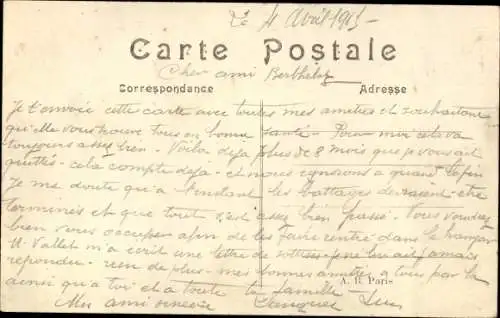 Le 4 Avril 1915
Carte Postale
Cher ami Berthelot
Correspondance Adresse
Je t'envoie cette carte avec toutes mes amitiés et souhaitant
qu'elle vous trouve tous en bonne santé - Pour moi cela va
toujours assez bien. Voila deja plus de 8 mois que je vous ait
quittés - cela compte deja - et nous ignorons a quand la fin
Je me doute qu'a l'instant les battages devraient etre
terminés et que tout s'est assez bien passé. Vous voudrez
bien vous occuper afin de les faire rentré dans le hangar
M. Vallet m'a écrit une lettre de je ne lui ait jamais
repondu - rien de plus - mes bonnes amitiés a tous par la
ainsi qu'a toi et a toute ta famille -
A. R. Paris
Mes amis sincère